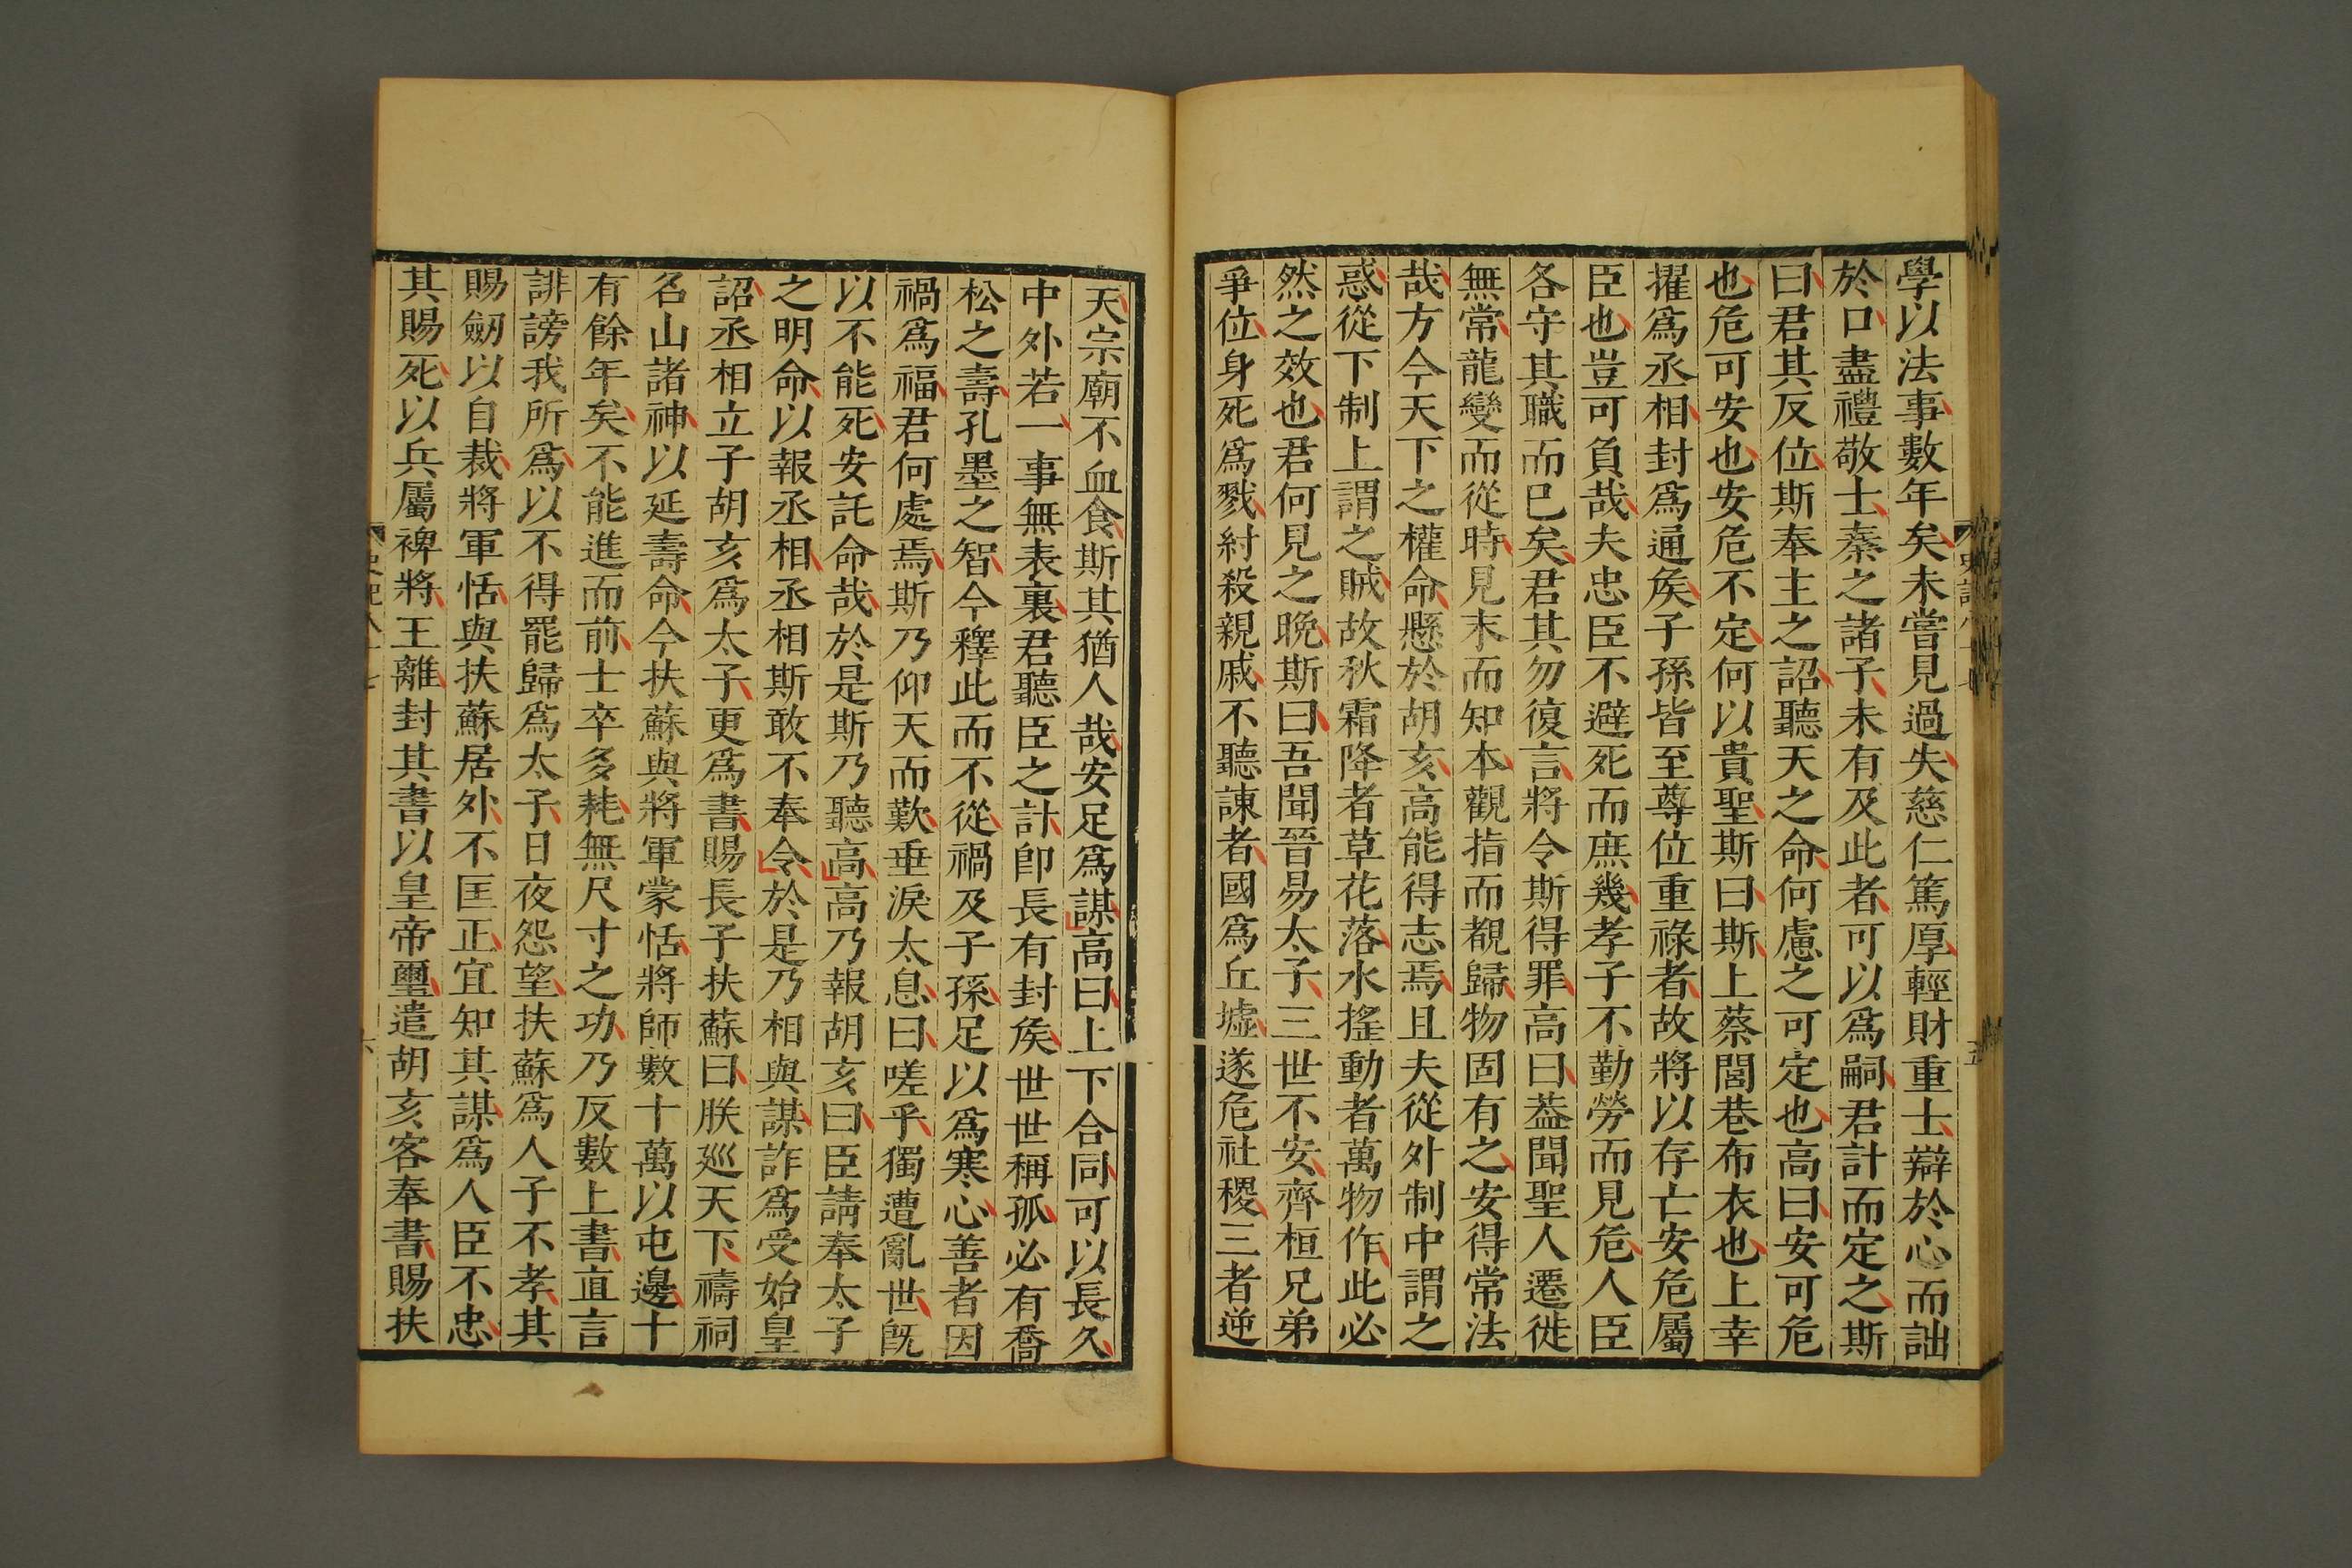 學以法事數年矣未嘗見過失慈仁篤厚輕財重士辯於心而詘
於口盡禮敬士秦之諸子未有及此者可以爲嗣君計而定之斯
曰君其反位斯奉主之詔聽天之命何慮之可定也高曰安可危
也危可安也安危不定何以貴聖斯曰斯上蔡閭巷布衣也上幸
擢爲丞相封爲通矦子孫皆至尊位重祿者故將以存亡安危屬
臣也豈可負哉夫忠臣不避死而庶幾孝子不勤勞而見危人臣
各守其職而已矣君其勿復言將令斯得罪高曰葢聞聖人遷徙
無常龍變而從時見末而知本觀指而覩歸物固有之安得常法
哉方今天下之權命懸於胡亥高能得志焉且夫從外制中謂之
惑從下制上謂之賊故秋霜降者草花落水搖動者萬物作此必
然之效也君何見之晚斯曰吾聞晉易太子三世不安齊桓兄弟
爭位身死爲戮紂殺親戚不聽諫者國爲丘墟遂危社稷三者逆
天宗廟不血食斯其猶人哉安足爲謀高曰上下合同可以長久
中外若一事無表裏君聽臣之計卽長有封矦世世稱孤必有喬
松之壽孔墨之智今釋此而不從禍及子孫足以爲寒心善者因
禍爲福君何處焉斯乃仰天而歎垂淚太息曰嗟乎獨遭亂世旣
以不能死安託命哉於是斯乃聽高高乃報胡亥曰臣請奉太子
之明命以報丞相丞相斯敢不奉令於是乃相與謀詐爲受始皇
詔丞相立子胡亥爲太子更爲書賜長子扶蘇曰朕廵天下禱祠
名山諸神以延壽命今扶蘇與將軍蒙恬將師數十萬以屯邊十
有餘年矣不能進而前士卒多耗無尺寸之功乃反數上書直言
誹謗我所爲以不得罷歸爲太子日夜怨望扶蘇爲人子不孝其
賜劒以自裁將軍恬與扶蘇居外不匡正宜知其謀爲人臣不忠
其賜死以兵屬裨將王離封其書以皇帝璽遣胡亥客奉書賜扶